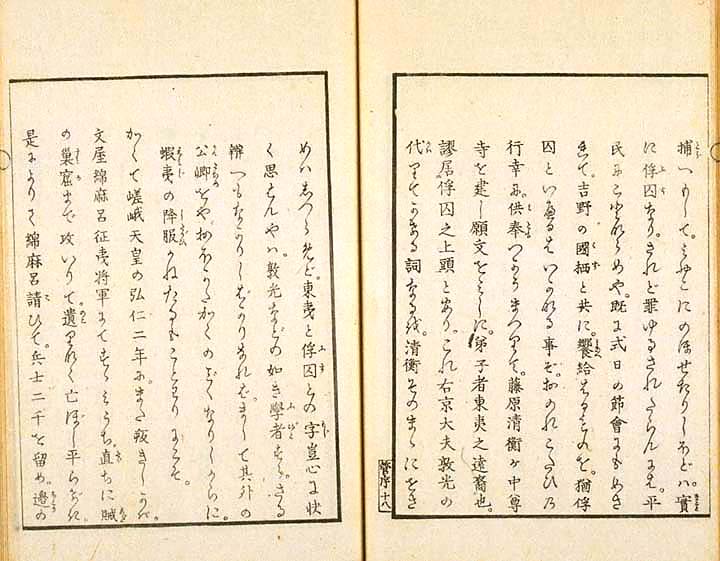 捕へもして。みやこにのぼせたりしほどハ。實
に俘囚なり。されど罪ゆるされたらんにハ。平
民にことならめや。既に式日の節會にもめさ
れて。吉野の國栖と共に。饗給はるものを。猶俘
囚といふるはいかなる事ぞ。おのれこたびの
行幸に。供奉つかうまつりて。藤原清衡ヶ中尊
寺を建し願文をみしに。弟子者東夷之遠裔也。
謬居俘囚之上頭とあり。これ右京大夫敦光の
代りてかける詞なるを。清衡そのまゝにをさ
序 十八
めハしつれど。東夷と俘囚との字豈心に快
く思はんやハ。敦光などの如き學者すら。さる
辨へもなかりしばかりなれば。まして其外の
公卿をや。おほかたかくのごとくなりしからに
蝦夷の降服かねたるもことわりにこそ。
かくて嵯峨天皇の弘仁二年に。また叛きしかば。
文屋綿麻呂征夷将軍にてすゝみうち。直ちに賊
の巢窟まで攻いりて。遺りなく亡ぼし平らげたり。
是によりて綿麻呂請ひて。兵士二千を留め。邊の